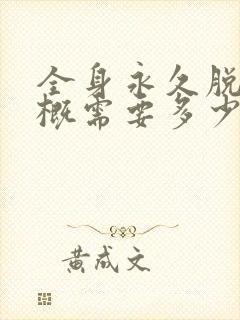 全身永久脱
概需要多少
黄成文